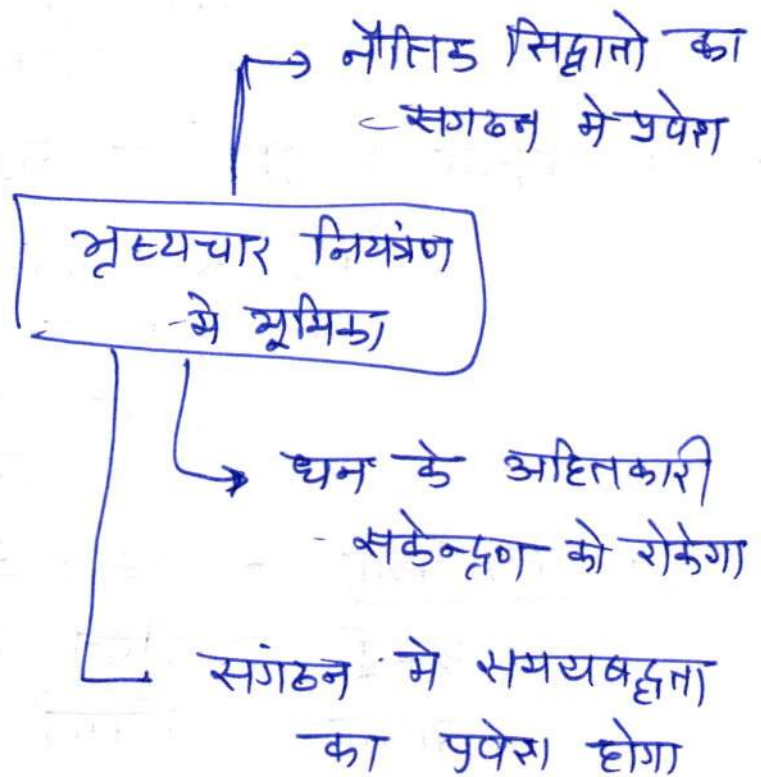 नैतिक सिद्वातो का
सगठन मे प्रवेश
भृष्टाचार नियंत्रण
मे भूमिका
धन के अहितकारी
सकेन्द्रण को रोकेगा
सगंठन मे समयबद्धता
का प्रवेश होगा